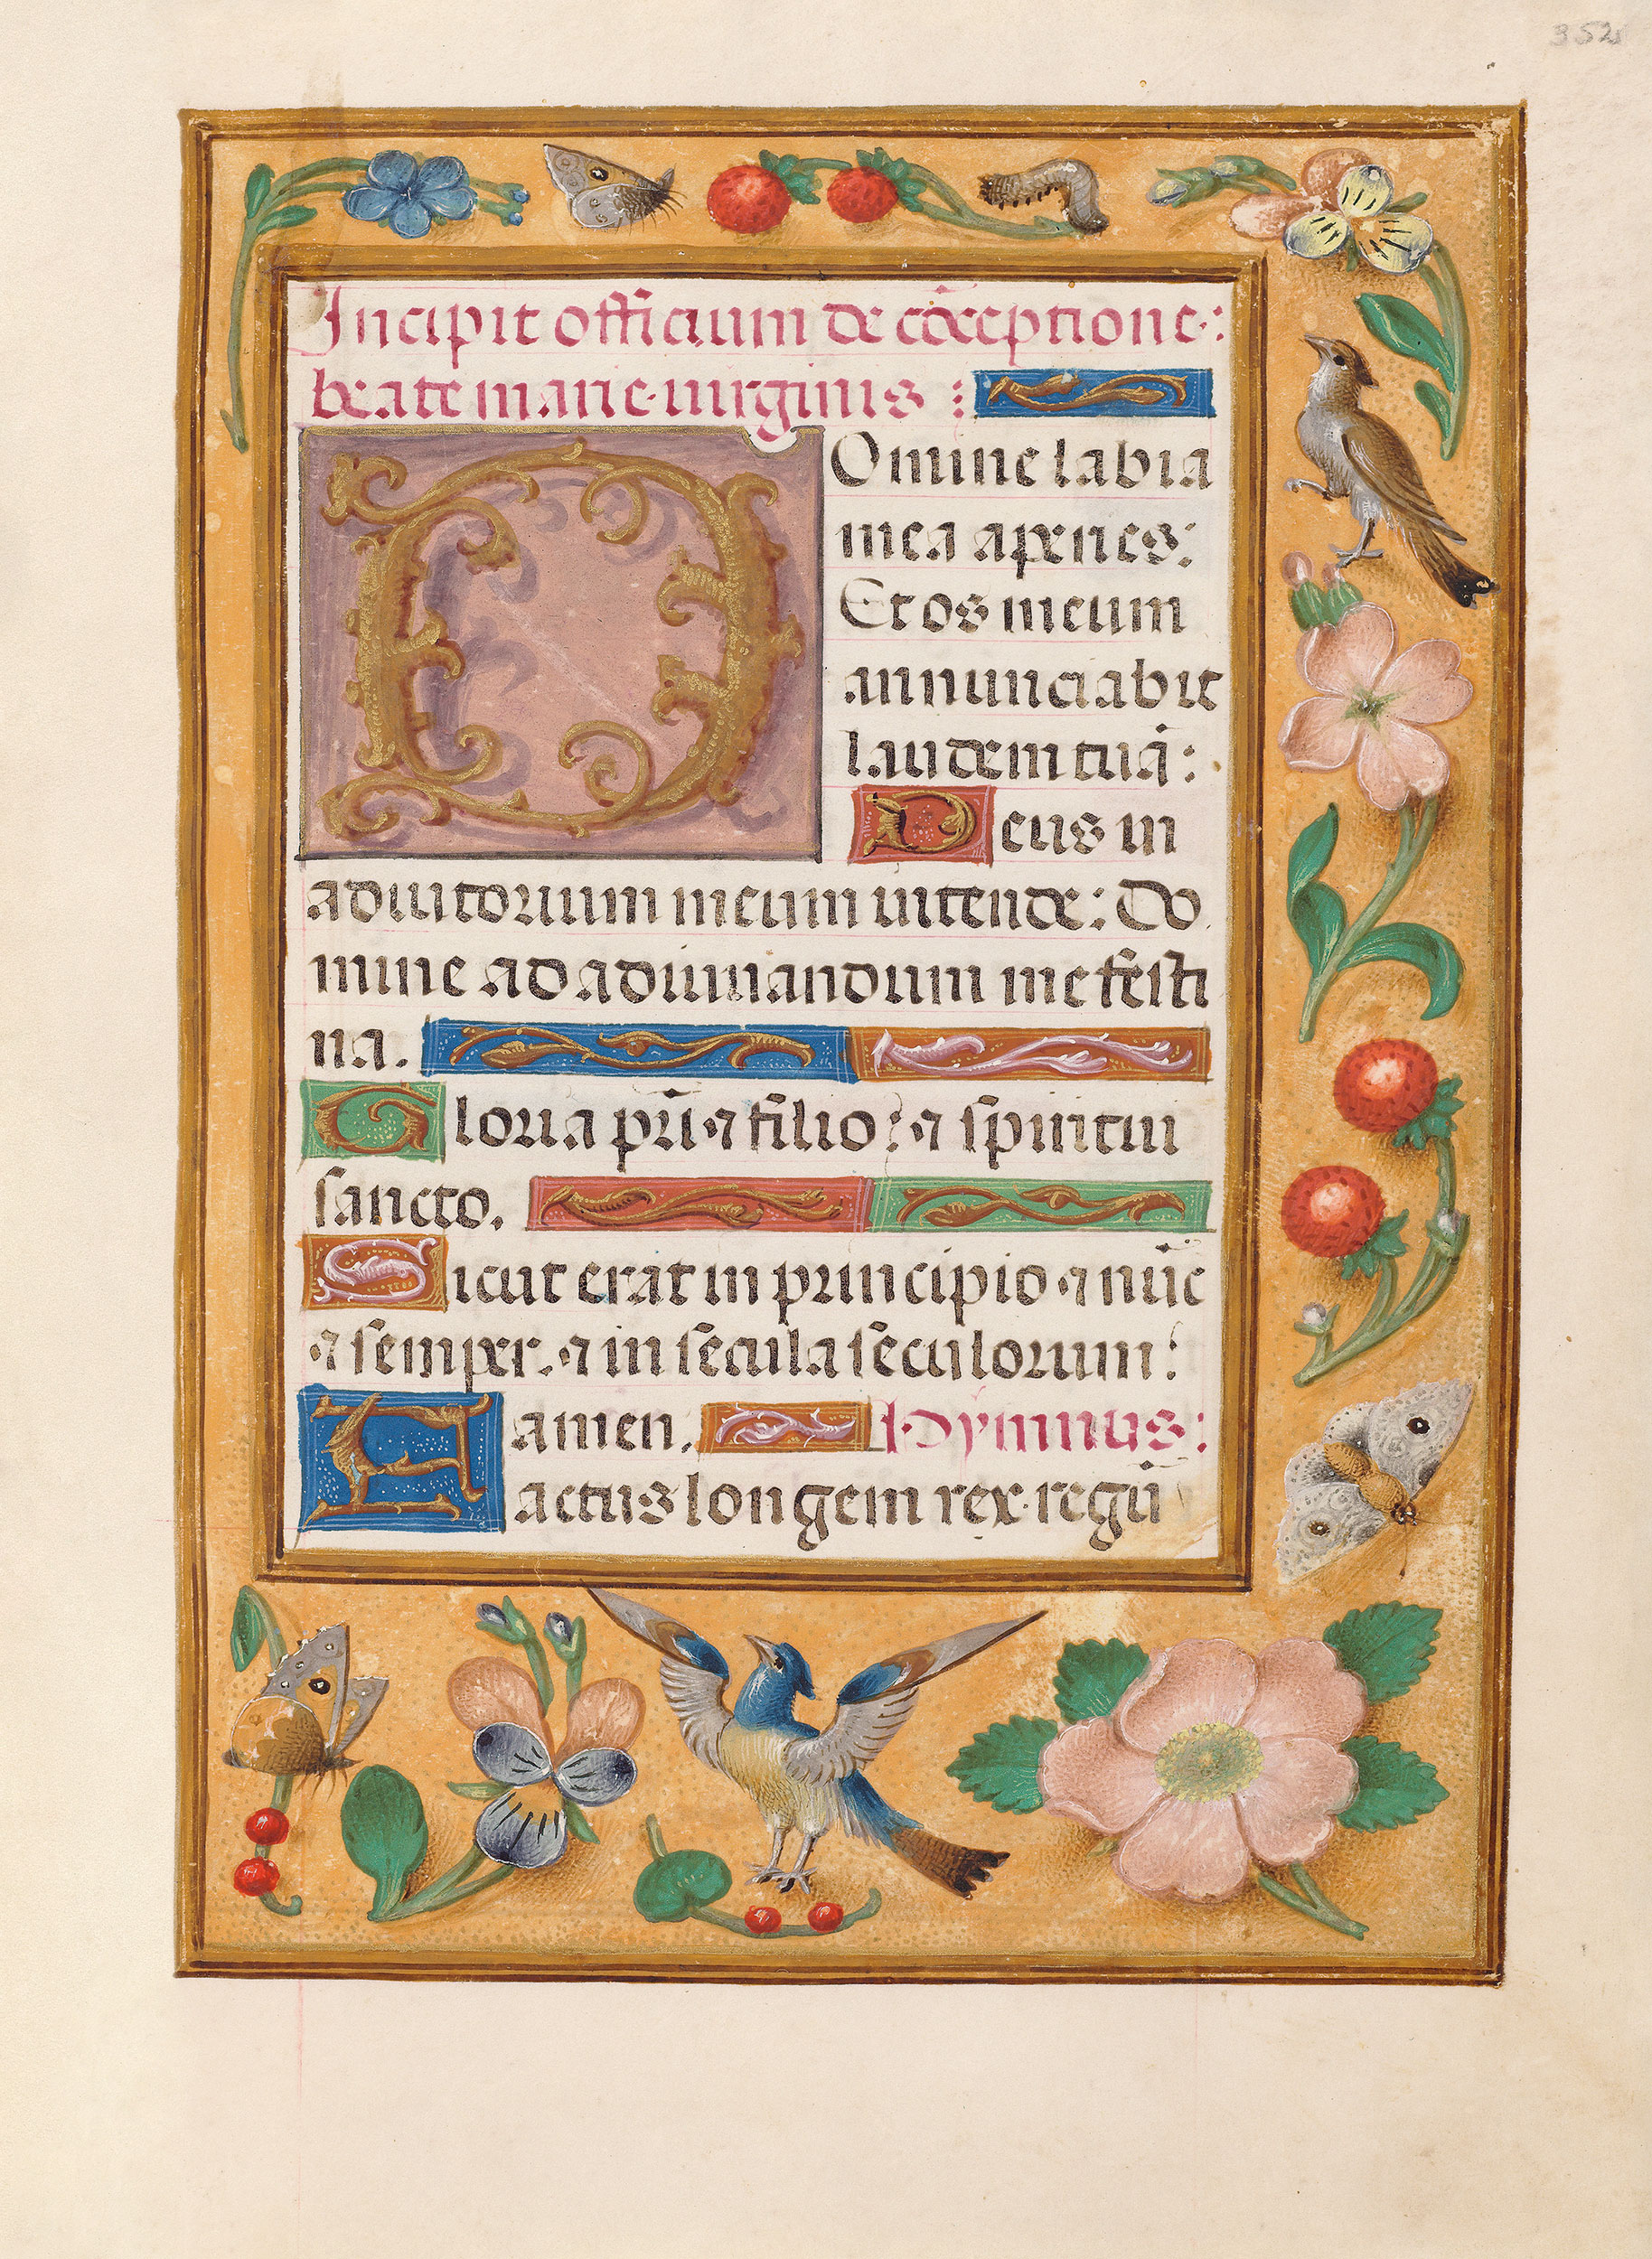 352
Incipit officium de cōceptione:
beate marie uirginis :
DOmine labia
mea aperies:
Et os meum
annunciabit
laudem tuā:
Deus in
adiutorium meum intende: Do
mine ad adiuuandum me festi
na.
Gloria pr̄i ⁊ filio: ⁊ spiritui
sancto.
Sicut erat in principio ⁊ nūc
⁊ semper. ⁊ in secula seculorum:
amen. Hymnus:
actus longem rex regū